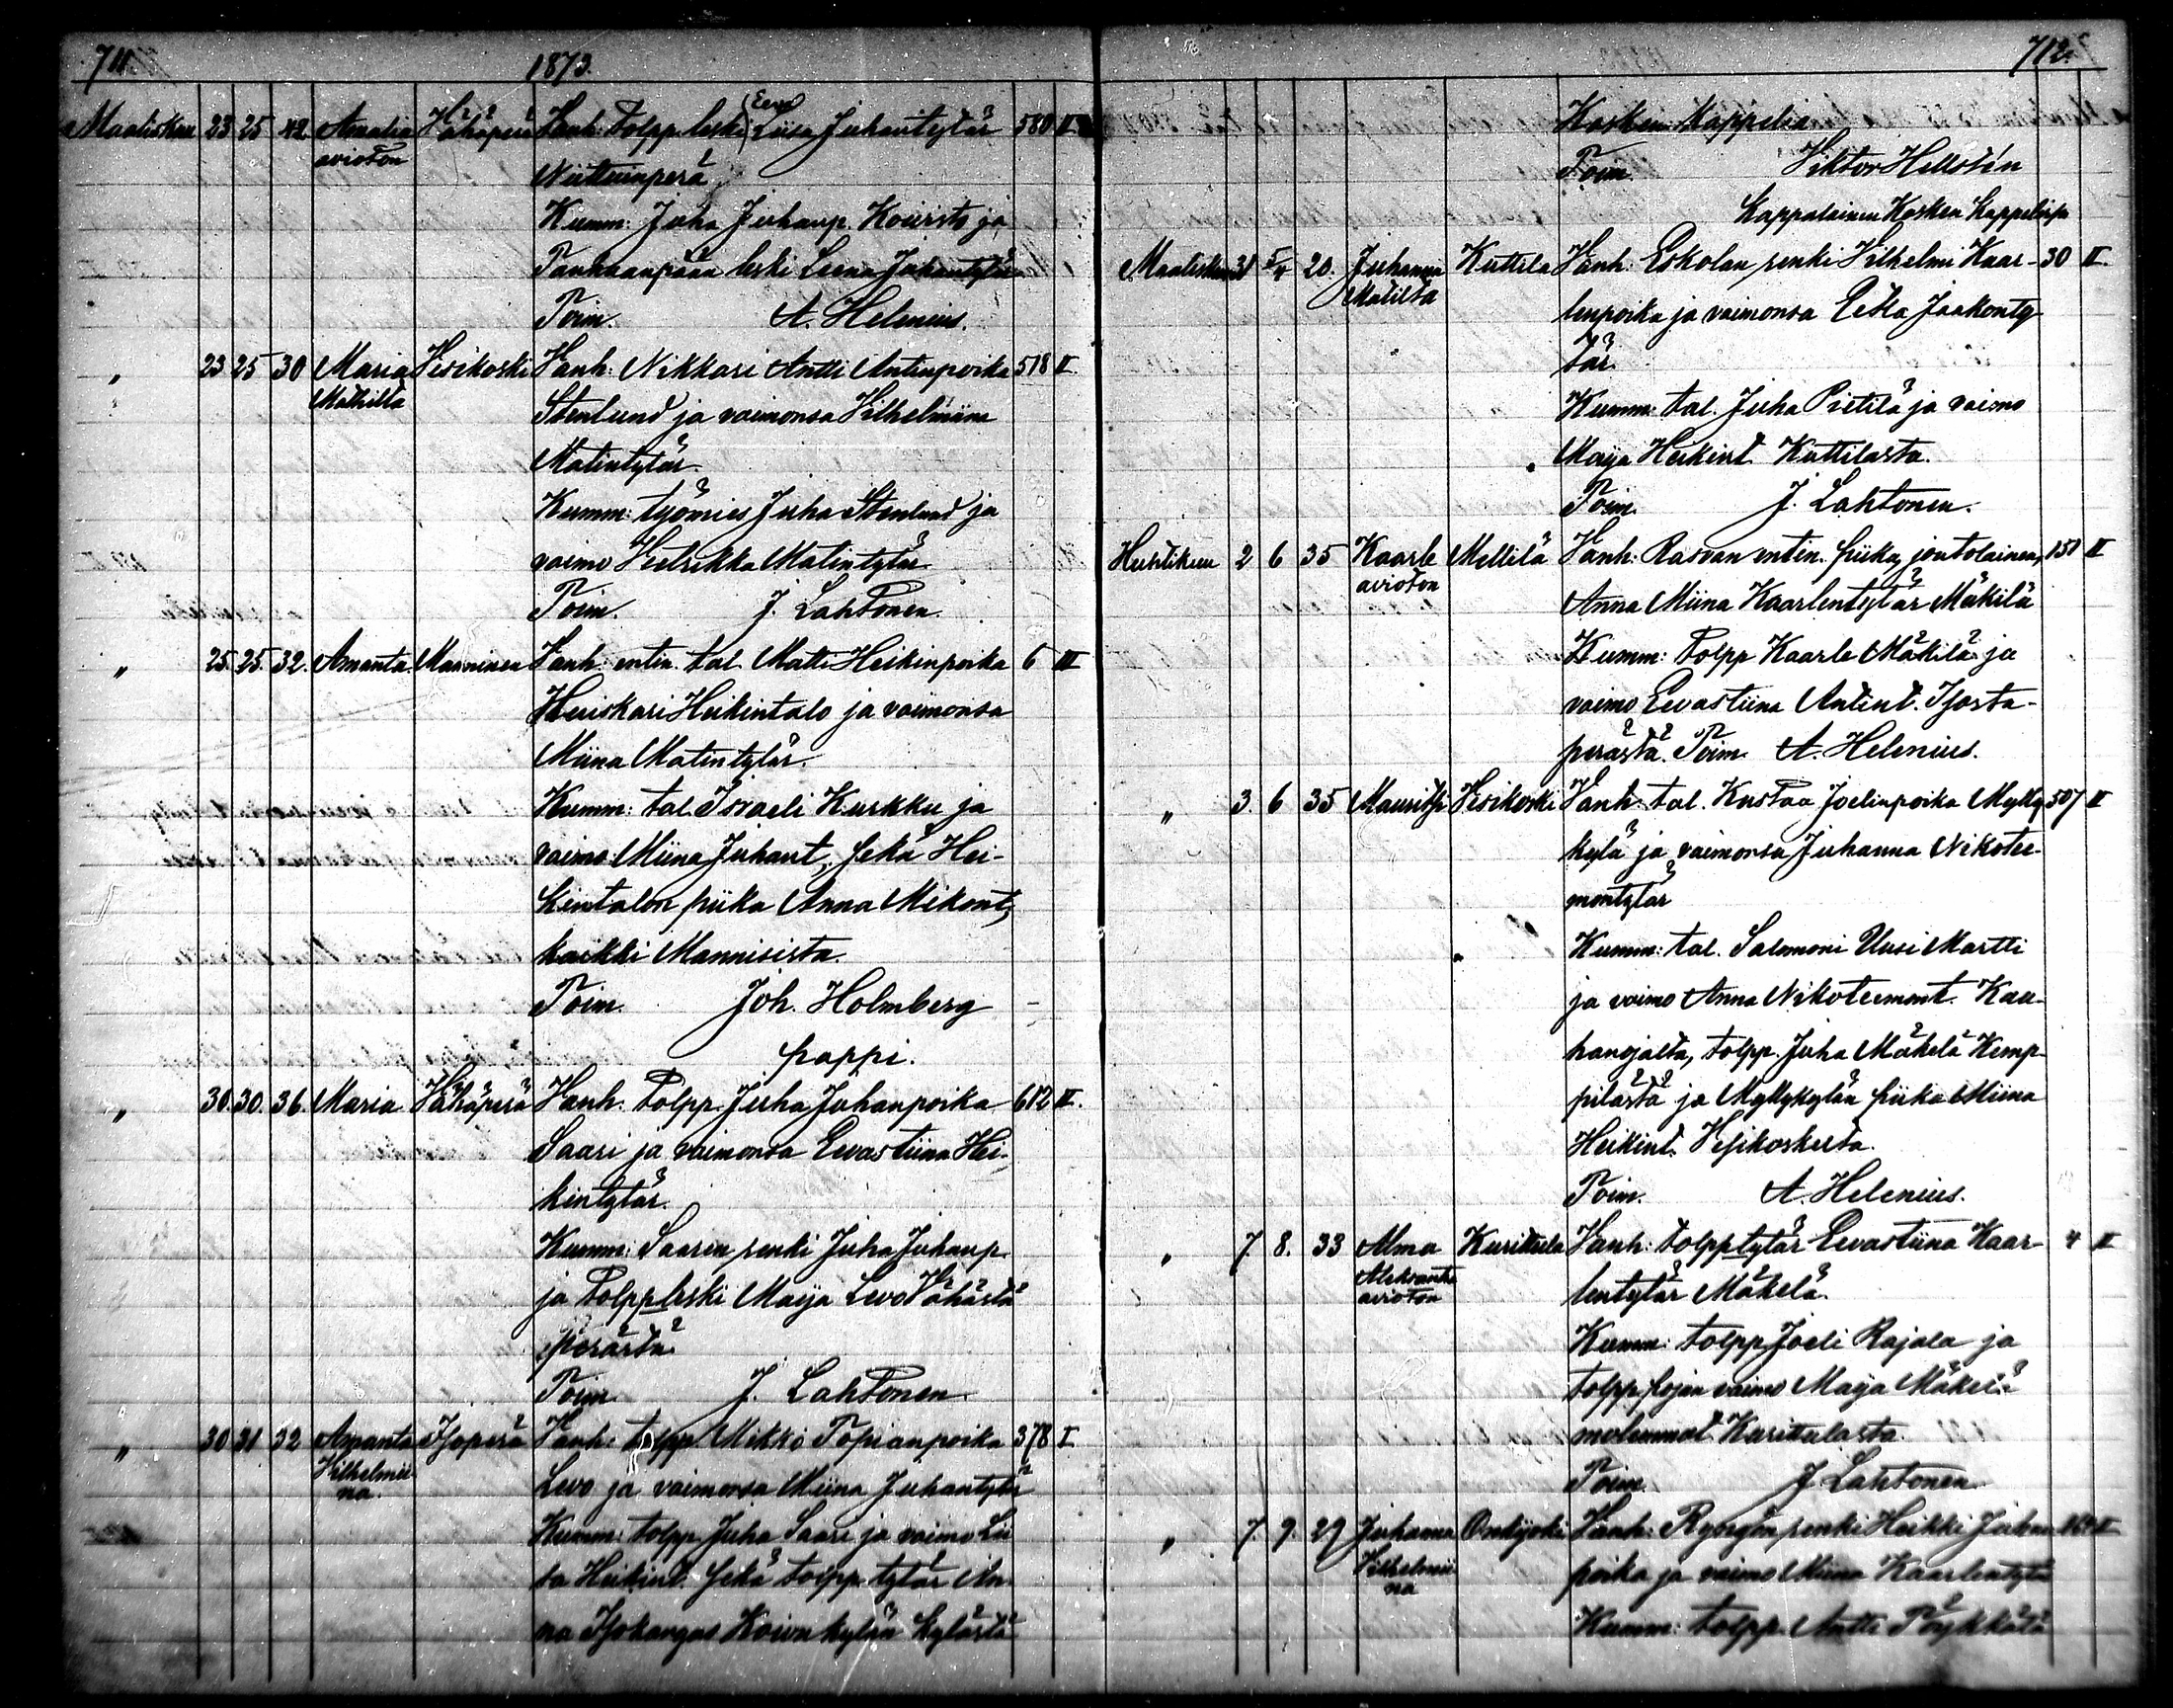 711
1873.
Maaliskuu 23 25 42 Amalia Vähäperä Vanh: Tolpp. leski (Eeva) Liisa Juhantytär 580 II
avioton
Niittunperä
Kumm: Juha Juhanp. Koivisto ja
Tanhuanpään leski Leena Juhantytär
Toim. A. Helenius.
„ 23 25 30 Maria Vesikoski Vanh: Nikkari Antti Antinpoika 518 II
Mathilta
Stenlund ja vaimonsa Vilhelmiina
Matintytär.
Kumm: työmies Juha Stenlund ja
vaimo Hetrikka Matintytär
Toim. J. Lahtonen.
„ 25. 25. 32. Amanta Manninen Vanh: entin. tal. Matti Heikinpoika 6 III
Heiskari Heikintalo ja vaimonsa
Miina Matintytär.
Kumm: tal. Israeli Kurkku ja
vaimo Miina Juhant., sekä Hei-
kintalon piika Anna Mikont,
kaikki Mannisista.
Toim. Joh. Holmberg
pappi.
„ 30. 30. 36. Maria Vähäperä Vanh. Tolpp. Juha Juhanpoika 612 II.
Saari ja vaimonsa Eevastiina Hei-
kintytär.
Kumm: Saaren renki Juha Juhanp.
ja Tolpp.leski Maija Levo Vähästä
perästä
Toim. J. Lahtonen
„ 30 31 32 Amanta Isoperä Vanh: tolpp. Mikko Topianpoika 378 I
Vilhelmii-
na.
Levo ja vaimonsa Miina Juhantytär
Kumm: tolpp. Juha Saari ja vaimo Lii
sa Heikint. sekä tolpp. tytär An-
na Isokangas Koivukylän kylästä
712.
Kosken Kappelia
Toim. Viktor Hellstén
kappalainen Kosken kappelissa
Maaliskuu 31 5/4 20. Juhanna Kuttila Vanh: Eskolan renki Vilhelmi Kaar- 30 II.
Matilta
lenpoika ja vaimonsa Eeva Jaakonty
tär.
Kumm: tal. Juha Pietilä ja vaimo
Maija Heikint. Kuttilasta.
Toim. J. Lahtonen.
Huhtikuu 2 6 35 Kaarle Mellilä Vanh: Rasvan entin. piika, joutolainen, 151 II
avioton
Anna Miina Kaarlentytär Mäkilä
Kumm: Tolpp Kaarle Mäkilä ja
vaimo Eevastiina Antint. Isosta-
perästä. Toim. A. Helenius.
„ 3. 6 35 Mauritsi Vesikoski Vanh: tal. Kustaa Joelinpoika Mylly 507 II
kylä ja vaimonsa Juhanna Nikotee-
montytär
Kumm: tal. Salomoni Uusi Martti
ja vaimo Anna Nikoteemont. Kau-
hanojalta, tolpp. Juha Mäkelä Kemp-
pilästä ja Myllykylän piika Miina
Heikint. Vesikoskesta.
Toim. A. Helenius.
„ 7. 8. 33 Alma Kurittula Vanh: tolpp.tytär Eevastiina Kaar- 4 II
Aleksantra
avioton
lentytär Mäkelä.
Kumm: tolpp. Joeli Rajala ja
tolpp. pojan vaimo Maija Mäkelä
molemmat Kurittulasta
Toim. J. Lahtonen
„ 7. 9. 29 Juhanna Onkijoki Vanh: renki Heikki Juhan II
Vilhelmii-
na
poika ja vaimo Miina Kaarlentytär
Kumm: tolpp. Antti Pöykkälä